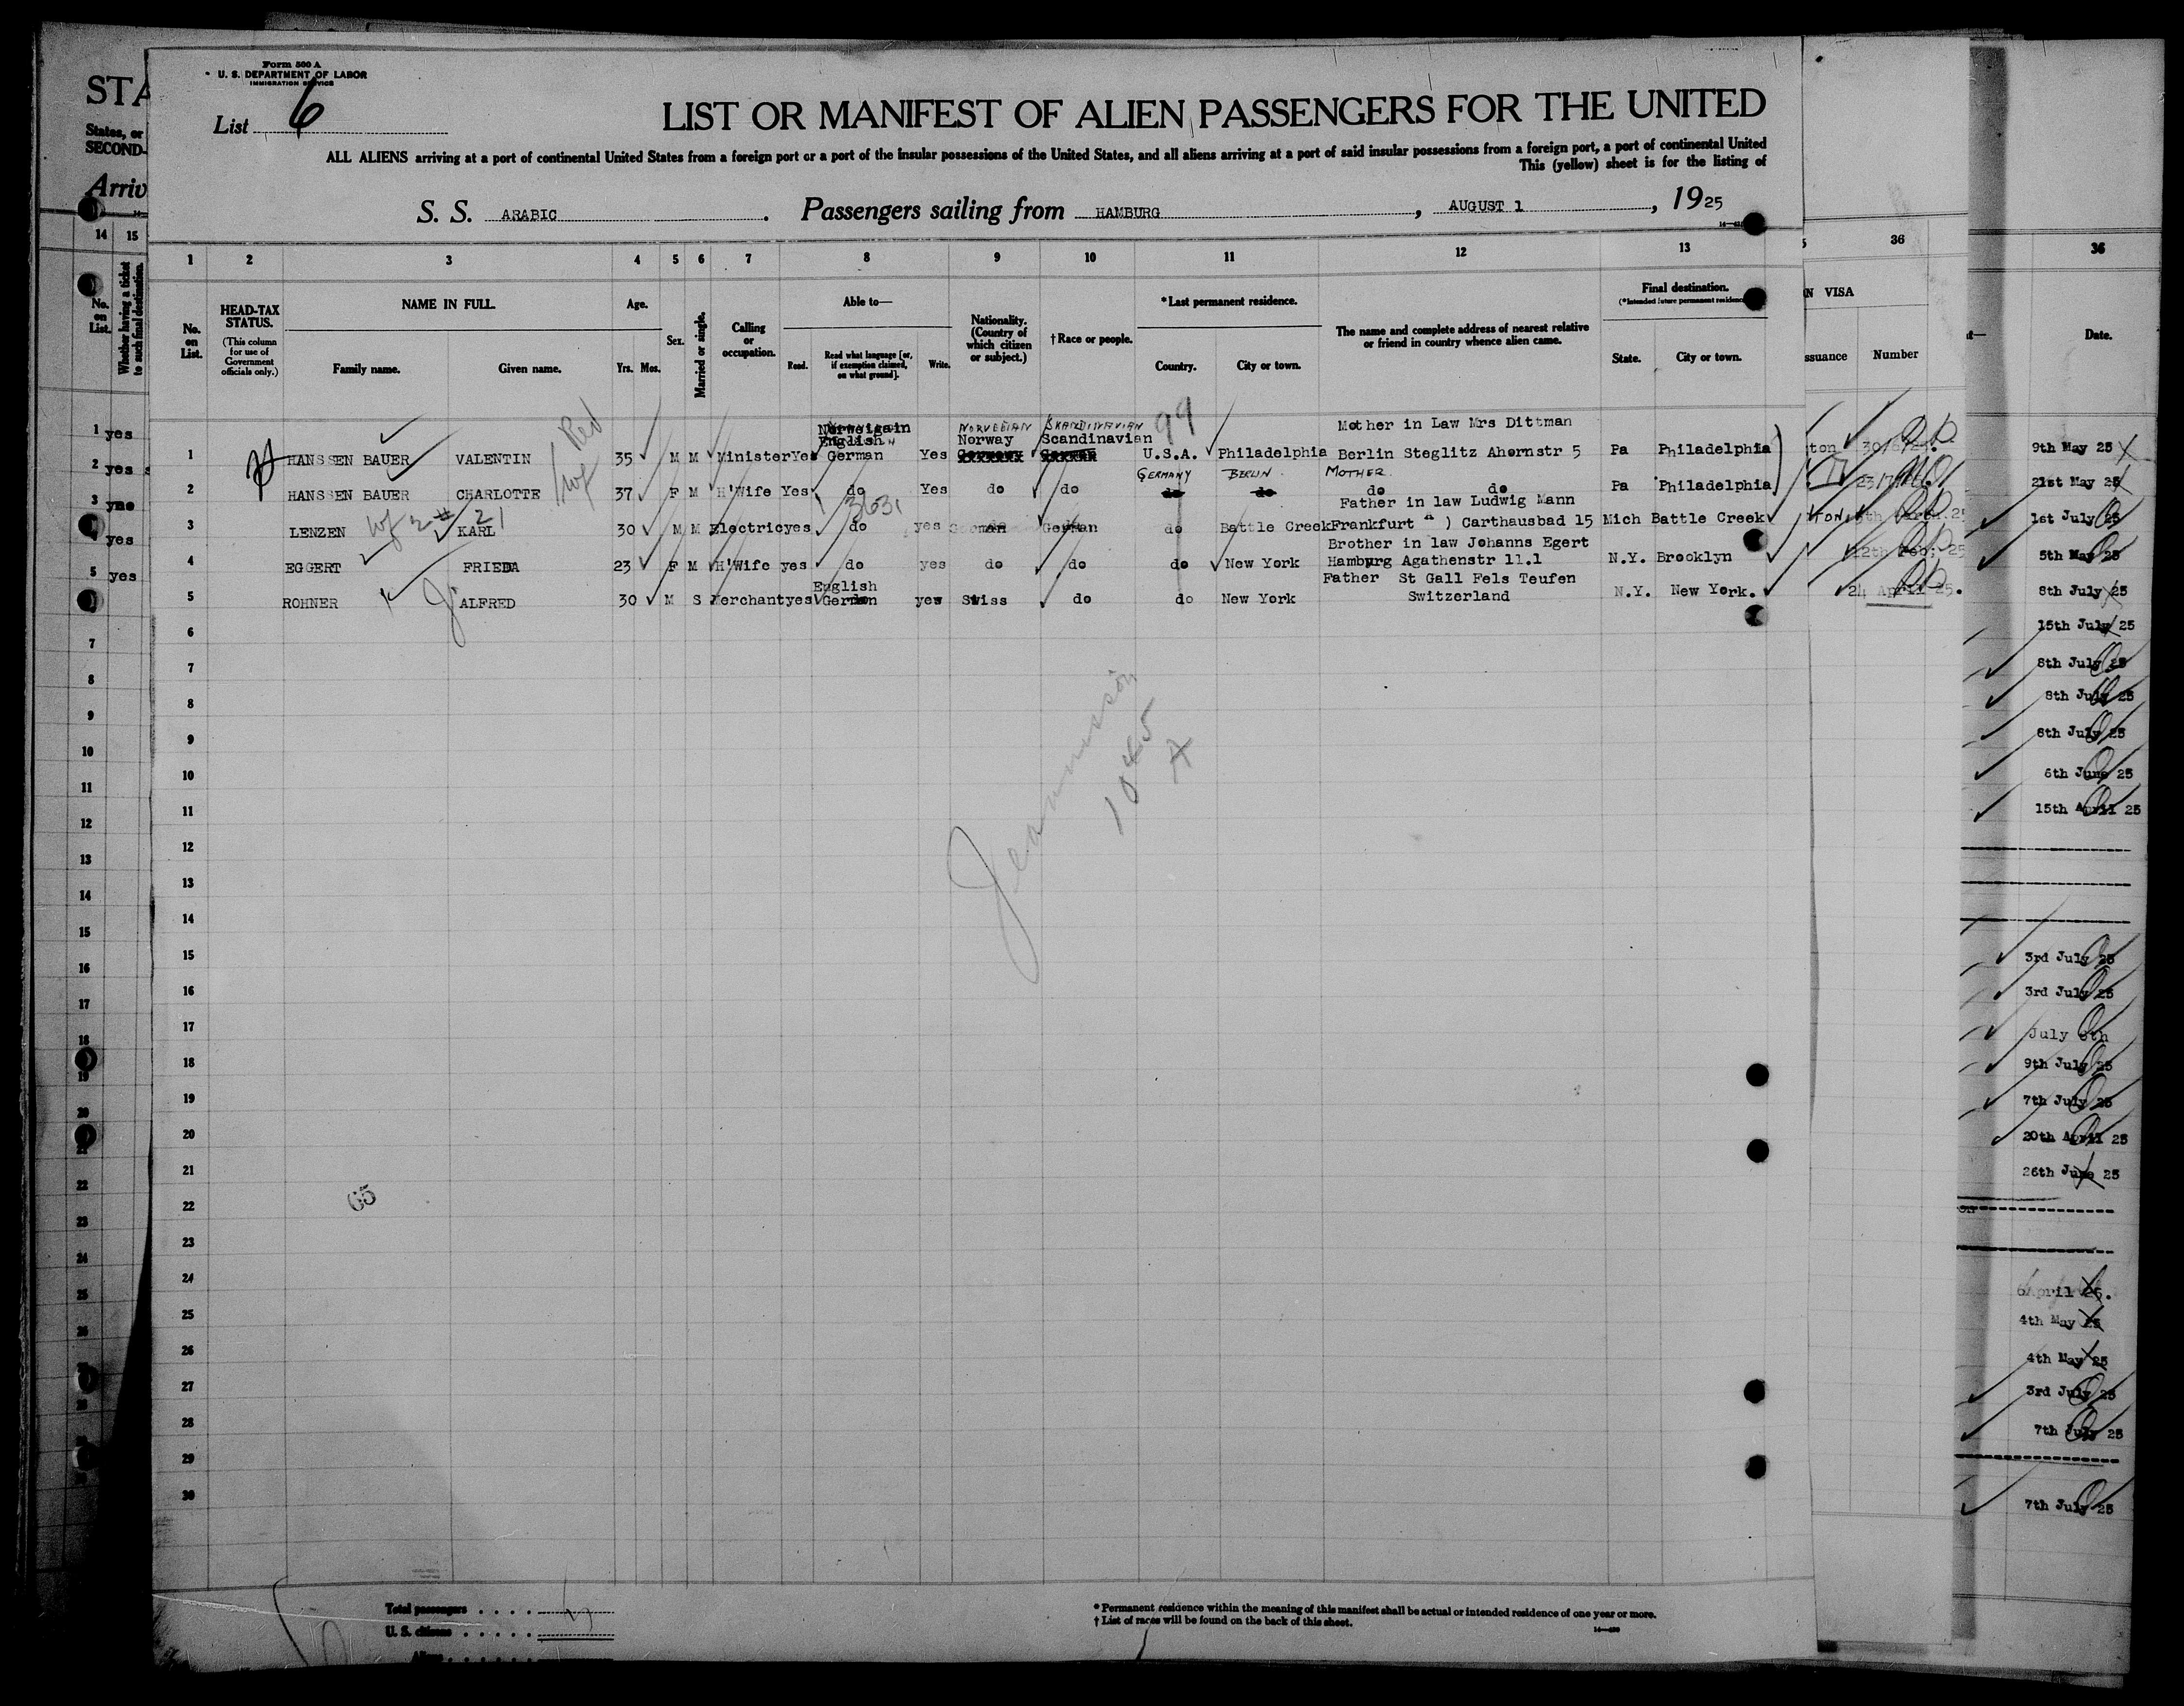 Form 500 A
U. S. DEPARTMENT OF LABOR
IMMIGRATION SERVICE
List 6
LIST OR MANIFEST OF ALIEN PASSENGERS FOR THE UNITED
ALL ALIENS arriving at a port of continental United States from a foreign port or a port of the insular possessions of the United States, and all aliens arriving at a port of said insular possessions from a foreign port, a port of continental United
This (yellow) sheet is for the listing of
S. S. ARABIC . Passengers sailing from HAMBURG , AUGUST 1 , 1925
1 2 3 4 5 6 7 8 9 10 11 12 13
No. on List.
HEAD-TAX STATUS.
(This column for use of Government officials only.)
NAME IN FULL.
Family name. Given name.
Age.
Yrs. Mos.
Sex.
Married or single.
Calling or occupation.
Able to—
Read. Read what language [or, if exemption claimed, on what ground]. Write.
Nationality. (Country of which citizen or subject.)
†Race or people.
*Last permanent residence.
Country. City or town.
The name and complete address of nearest relative or friend in country whence alien came.
Final destination.
(*Intended future permanent residence
State. City or town.
Norweigain NORVEGIAN SKANDINAVIAN 99 Mother in Law Mrs Dittman
English Norway Scandinavian
1 HANSSEN BAUER VALENTIN 35 M M Minister Yes German Yes U.S.A. Philadelphia Berlin Steglitz Ahornstr 5 Pa Philadelphia
GERMANY BERLIN MOTHER
2 HANSSEN BAUER CHARLOTTE 37 F M H'Wife Yes do Yes do do do do do do Pa Philadelphia
Father in law Ludwig Mann
3 LENZEN KARL 30 M M Electric yes do yes German German do Battle Creek Frankfurt ) Carthausbad 15 Mich Battle Creek
Brother in law Johanns Egert
4 EGGERT FRIEDA 23 F M H'Wife yes do yes do do do New York Hamburg Agathenstr 11.1 N.Y. Brooklyn
English Father St Gall Fels Teufen
5 ROHNER ALFRED 30 M S Merchant yes German yes Swiss do do New York Switzerland N.Y. New York.
6
7
8
9
10
11
12
13
14
15
16
17
18
19
20
21
22
23
24
25
26
27
28
29
30
1045
A
65
Total passengers
U. S. citizens
Aliens
* Permanent residence within the meaning of this manifest shall be actual or intended residence of one year or more.
† List of races will be found on the back of this sheet.
STA
States, or
SECOND-
Arriv
14 15
No. on List.
Whether having a ticket to such final destination.
1 yes
2 yes
3
yes
5 yes
7
8
9
10
11
12
13
14
15
16
17
18
19
20
22
23
24
25
36
N VISA
ssuance Number
36
Date.
9th May 25
21st May 25
1st July 25
5th May 25
8th July 25
15th July 25
8th July 25
8th July 25
6th July 25
6th June 25
15th April 25
3rd July 25
3rd July 25
July 8th
9th July 25
7th July 25
20th April 25
26th June 25
April 25.
4th May 25
4th May 25
3rd July 25
7th July 25
7th July 25